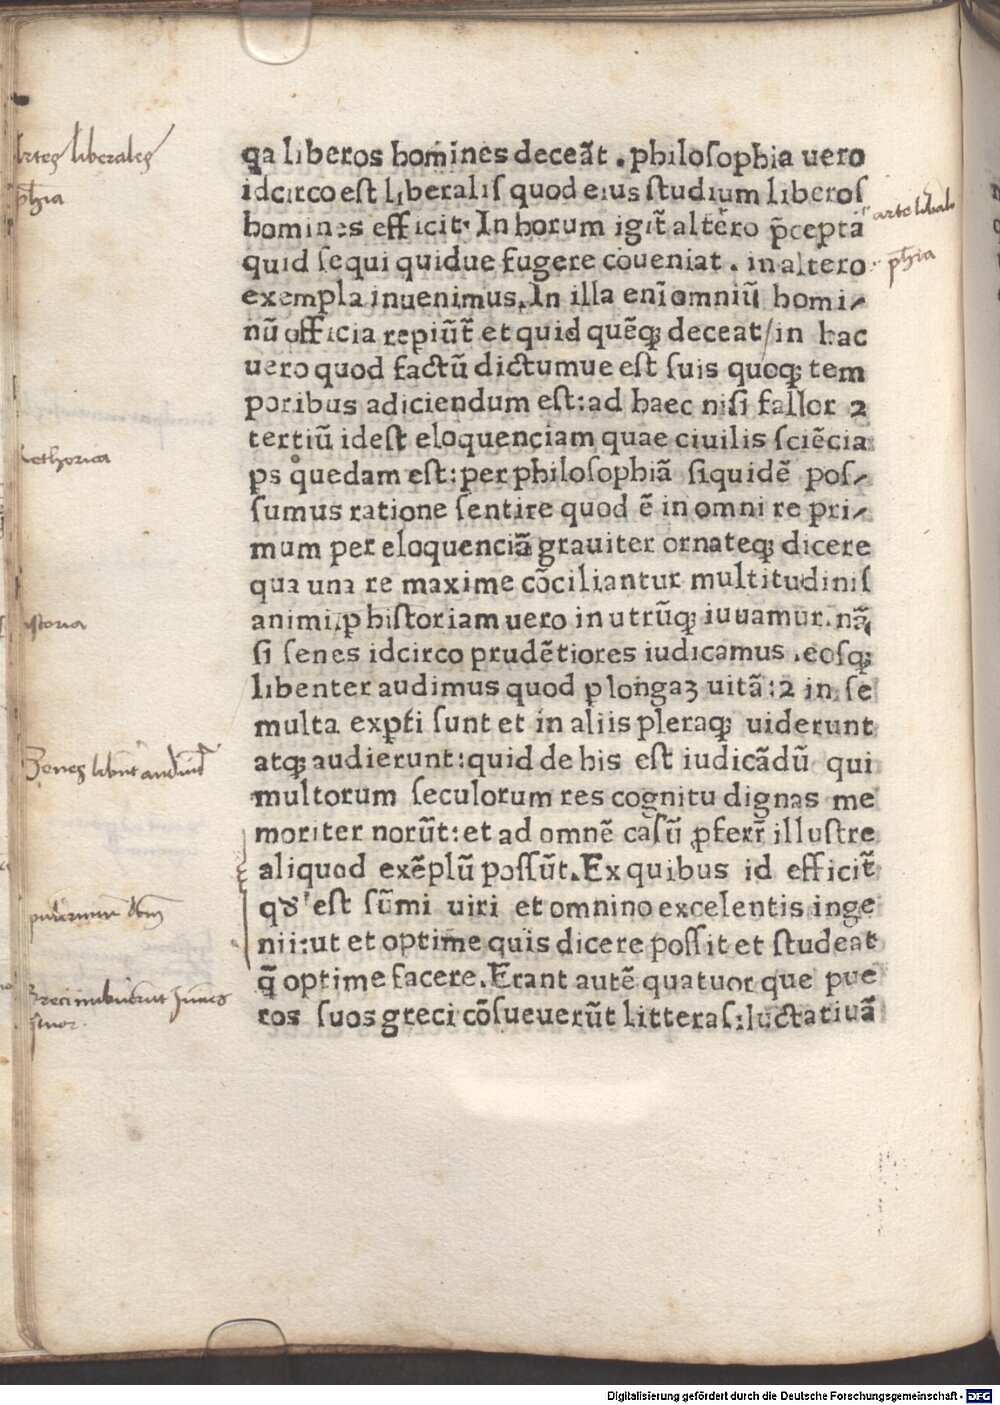 qa liberos homines deceāt . philosophia uero
idcirco est liberalis quod eius studium liberos
homines efficit. In horum igit̄ altero p̄cepta
quid sequi quidue fugere coueniat . in altero
exempla inuenimus. In illa enī omniū homi-
nū officia repiūt̄ et quid quēq; deceat/in hac
uero quod factū dictumue est suis quoq; tem
poribus adiciendum est: ad haec nisi fallor 2
tertiū idest eloquenciam quae ciuilis sciēcia
ps quedam est: per philosophiā siquidē pos-
sumus ratione sentire quod ē in omni re pri-
mum per eloquenciā grauiter ornateq; dicere
qua una re maxime cōciliantur multitudinis
animi. ꝑ historiam uero in utrūq; iuuamur. nā
si senes idcirco prudētiores iudicamus . eosq;
libenter audimus quod ꝑ longaʒ uitā: 2 in se
multa expti sunt et in aliis pleraq; uiderunt
atq; audierunt: quid de his est iudicādū qui
multorum seculorum res cognitu dignas me
moriter norūt: et ad omnē casū ꝓferr̄ illustre
aliquod exēplū possūt. Ex quibus id efficit̄
qď est sūmi uiri et omnino excelentis inge
nii: ut et optime quis dicere possit et studeat
q̄ optime facere. Erant autē quatuor que pue
ros suos greci cōsueuerūt litteras: luctatiuā
Artes liberales
phīa
phīa
Rethorica
historia
Senes
Digitalisierung gefördert durch die Deutsche Forschungsgemeinschaft - DFG